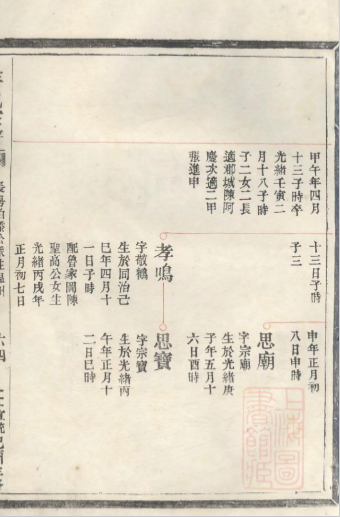 甲午年四月
十三子時卒
光緒壬寅二
月十八子時
子二女二長
城陳阿
慶次適二甲
張進申
十三日子時
子三
孝鳴
字敬鶴
生於同治己
巳年四月十
一日子時
配魯家閭陳
聖高公女生
光緒丙戌年
正月初七日
申年正月初
八日申時
思廟
字宗廟
生於光緒庚
子年五月十
六日酉時
思寶
字宗寶
生於光緒丙
午年正月十
二日巳時
六四
上海圖
書館藏